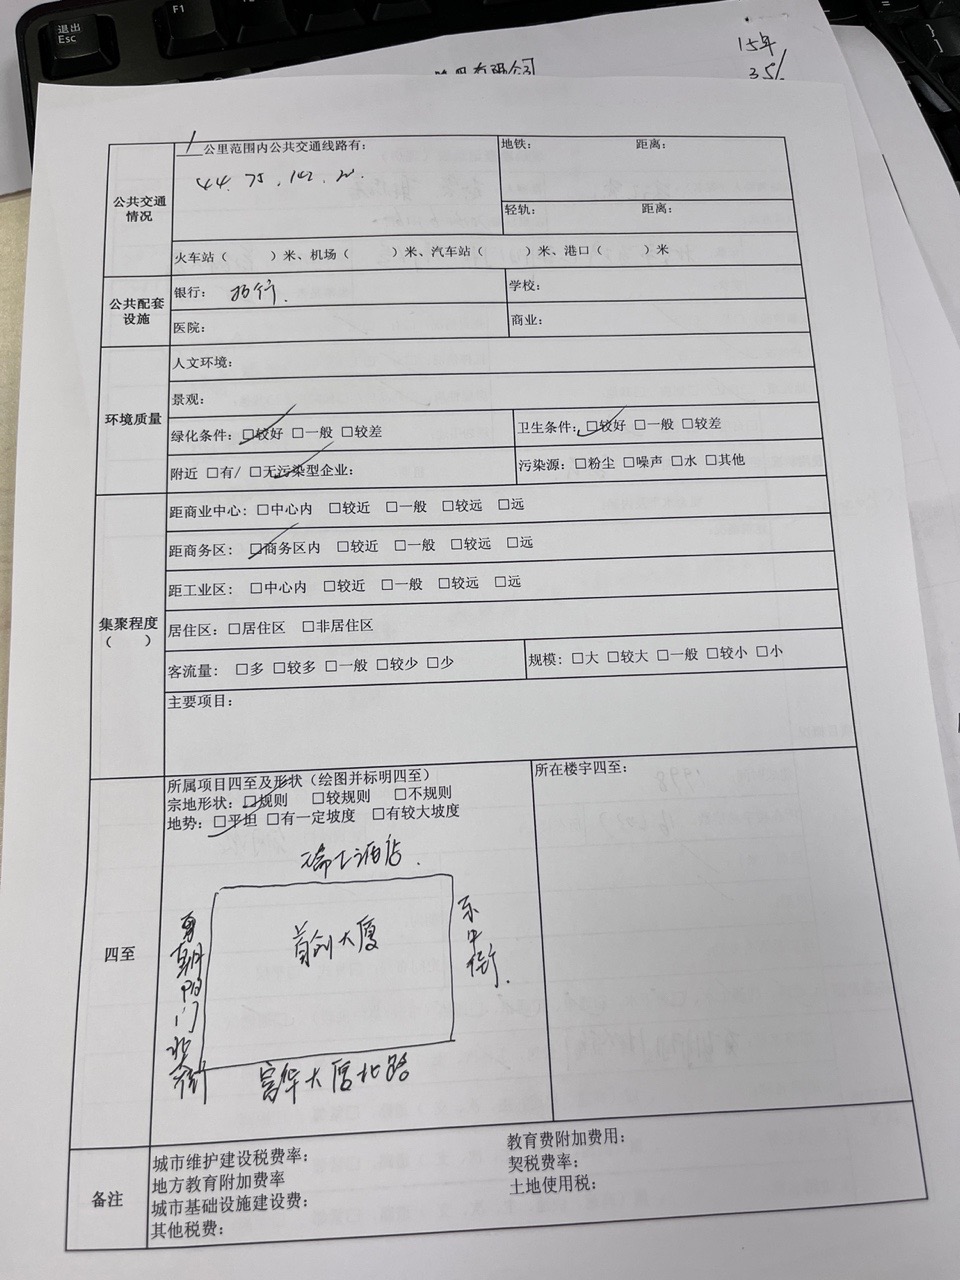 退出
Esc
F1
有限公司
15年
35%
1公里范围内公共交通线路有：
44. 75. 142.
地铁： 距离：
轻轨： 距离：
公共交通
情况
火车站（ ）米、机场（ ）米、汽车站（ ）米、港口（ ）米
公共配套
设施
银行：
学校：
医院：
商业：
环境质量
人文环境：
景观：
绿化条件：□较好 □一般 □较差
卫生条件：□较好 □一般 □较差
附近 □有/ □无污染型企业：
污染源：□粉尘 □噪声 □水 □其他
集聚程度
（ ）
距商业中心：□中心内 □较近 □一般 □较远 □远
距商务区：□商务区内 □较近 □一般 □较远 □远
距工业区：□中心内 □较近 □一般 □较远 □远
居住区：□居住区 □非居住区
客流量： □多 □较多 □一般 □较少 □少
规模：□大 □较大 □一般 □较小 □小
主要项目：
四至
所属项目四至及形状（绘图并标明四至）
宗地形状：□规则 □较规则 □不规则
地势：□平坦 □有一定坡度 □有较大坡度
所在楼宇四至：
瑞士酒店.
首创大厦
东中街.
朝阳门北
富华大厦北路
备注
城市维护建设税费率：
地方教育附加费率
城市基础设施建设费：
其他税费：
教育费附加费用：
契税费率：
土地使用税：